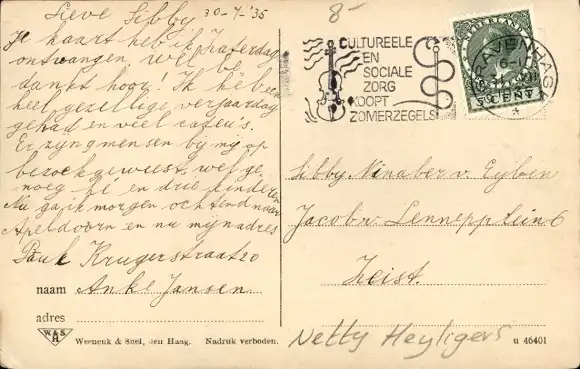 Lieve Libby 30-7-'35
Je kaart heb ik Zaterdag
ontvangen, wel be
dankt hoor! Ik heb een
heel gezellige verjaardag
gehad en veel cadeu's.
Er zyn gmensen by my op
bezoek geweest, wel ge
noeg hé en drie kinderen
Nu ga ik morgen ochtend naar
Apeldoorn en nu mijn adres
Paul Krugerstraat 20
naam Anke Jansen
adres
W&S
H
Weenenk & Snel, den Haag. Nadruk verboden.
8-
CULTUREELE
EN
SOCIALE
ZORG
KOOPT
ZOMERZEGELS
NEDERLAND
'S GRAVENHAGE
5 CENT
Libby Ninaber v. Eyben
Jacob v. Lennepplein 6
Zeist.
Netty Heyligers
u 46401